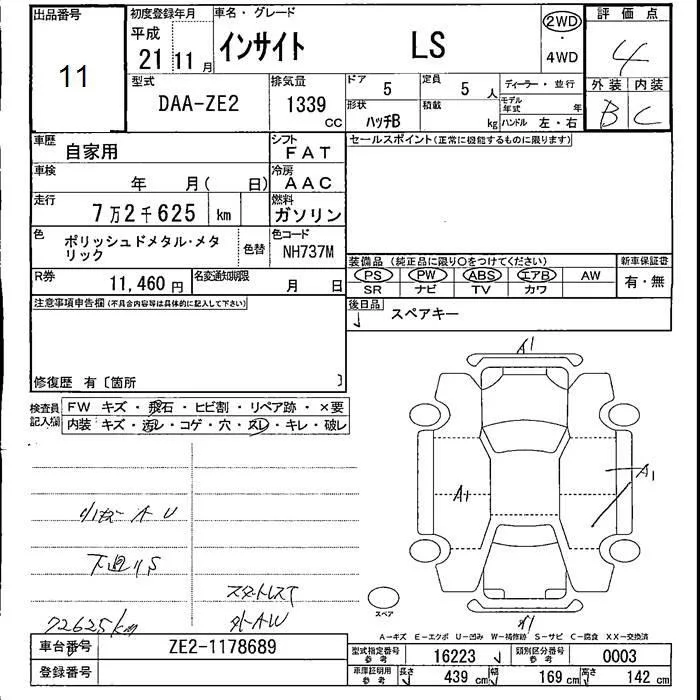 出品番号 初度登録年月 車名・グレード 2WD 評価点
11 平成 21年 11月 インサイト LS ・ 4WD 4
型式 排気量 ドア 5 定員 5人 ディーラー・並行 外装 内装
DAA-ZE2 1339 CC 形状 ハッチB 積載 kg モデル年式 年 ハンドル 左・右 B C
車歴 自家用 シフト FAT セールスポイント(正常に機能するものに限ります)
車検 年 月( 日) 冷房 AAC
走行 7万2千625 km 燃料 ガソリン
色 ポリッシュドメタル・メタリック 色替 色コード NH737M
装備品 (純正品に限り○をつけてください) 新車保証書
PS PW ABS エアB AW 有・無
SR ナビ TV カワ
R券 11,460円 名変通知期限 月 日
後日品 スペアキー
注意事項申告欄(不具合内容等は具体的に記入して下さい)
修復歴 有〔箇所 〕
検査員記入欄 FW キズ・飛石・ヒビ割・リペア跡・×要
内装 キズ・汚レ・コゲ・穴・スレ・キレ・破レ
A1
A1
A1
A U
下廻りS
72625km
外AW
スペア
A1
A-キズ E-エクボ U-凹み W-補修跡 S-サビ C-腐食 XX-交換済
車台番号 ZE2-1178689 型式指定番号 参考 16223 類別区分番号 参考 0003
登録番号 車庫証明用 参考 長さ 439 cm 幅 169 cm 高さ 142 cm